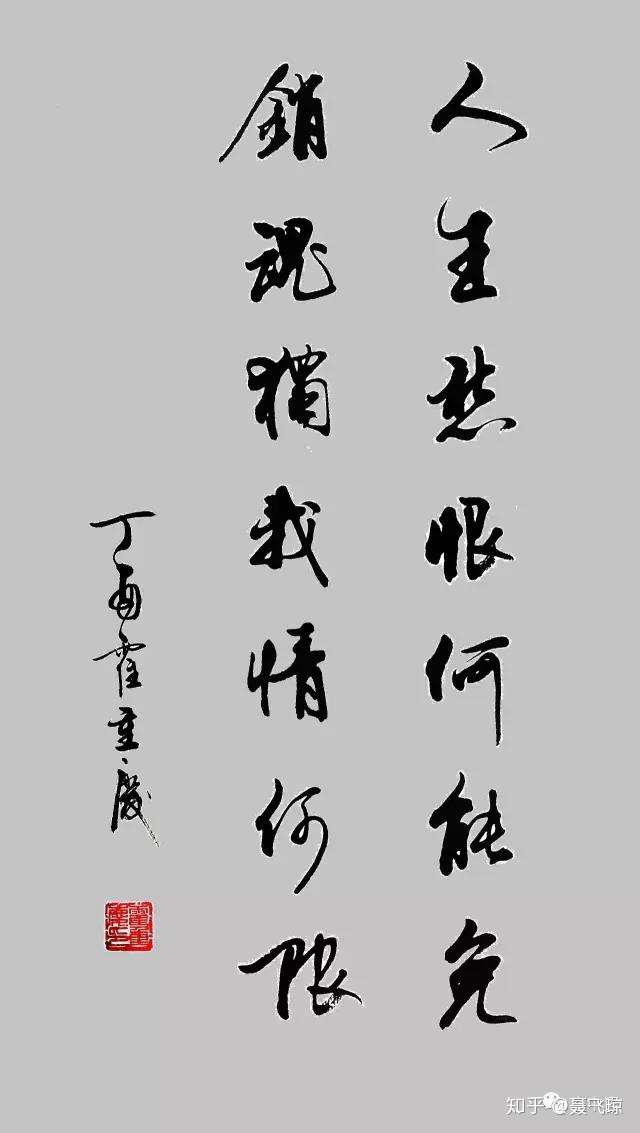 人生愁恨何能免
銷魂獨我情何限
丁酉霍重慶
知乎 @聂飞踪